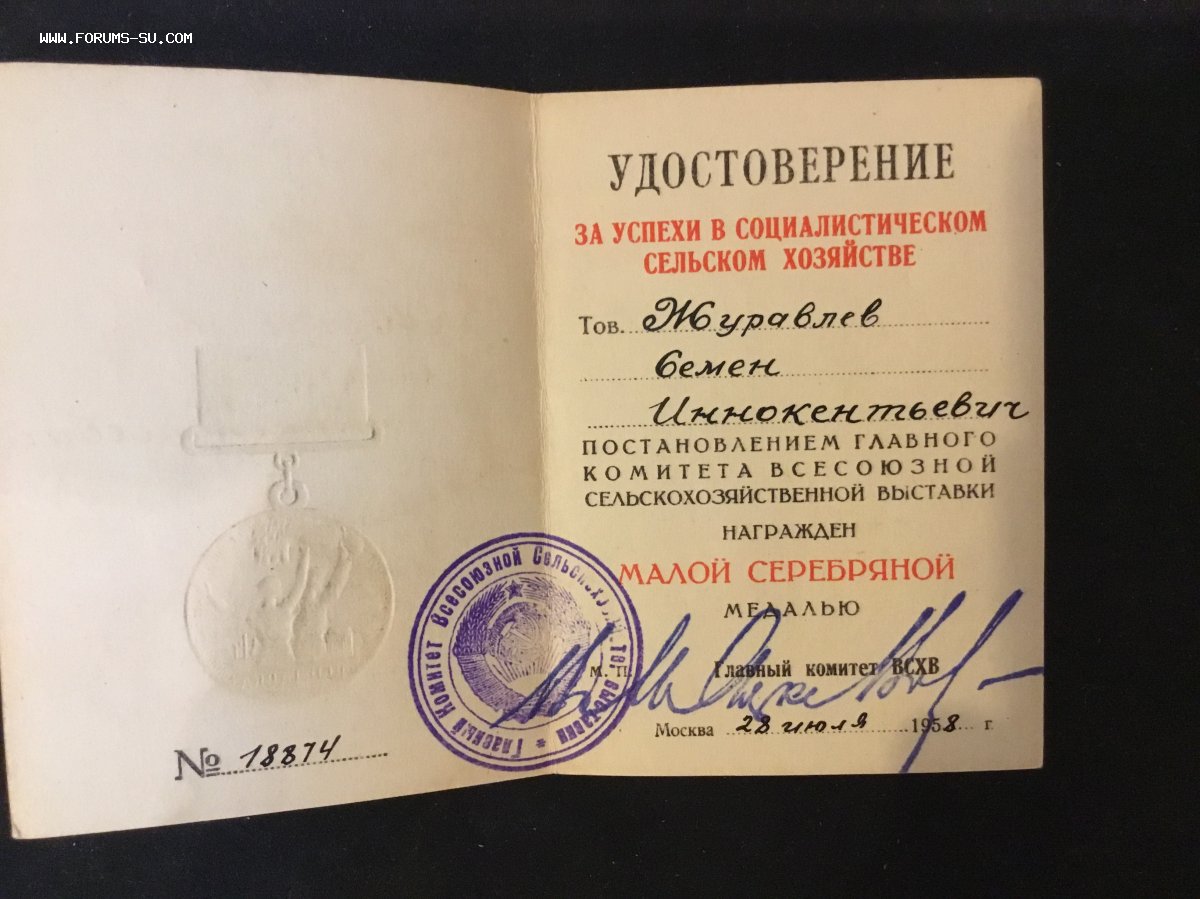 WWW.FORUMS-SU.COM
УДОСТОВЕРЕНИЕ
ЗА УСПЕХИ В СОЦИАЛИСТИЧЕСКОМ
СЕЛЬСКОМ ХОЗЯЙСТВЕ
Тов. Журавлев
Семен
Иннокентьевич
ПОСТАНОВЛЕНИЕМ ГЛАВНОГО
КОМИТЕТА ВСЕСОЮЗНОЙ
СЕЛЬСКОХОЗЯЙСТВЕННОЙ ВЫСТАВКИ
НАГРАЖДЕН
МАЛОЙ СЕРЕБРЯНОЙ
МЕДАЛЬЮ
М. П. Главный комитет ВСХВ
Москва 28 июля 1958 г.
№ 18874
Главный Комитет Всесоюзной Сельскохоз. выставки